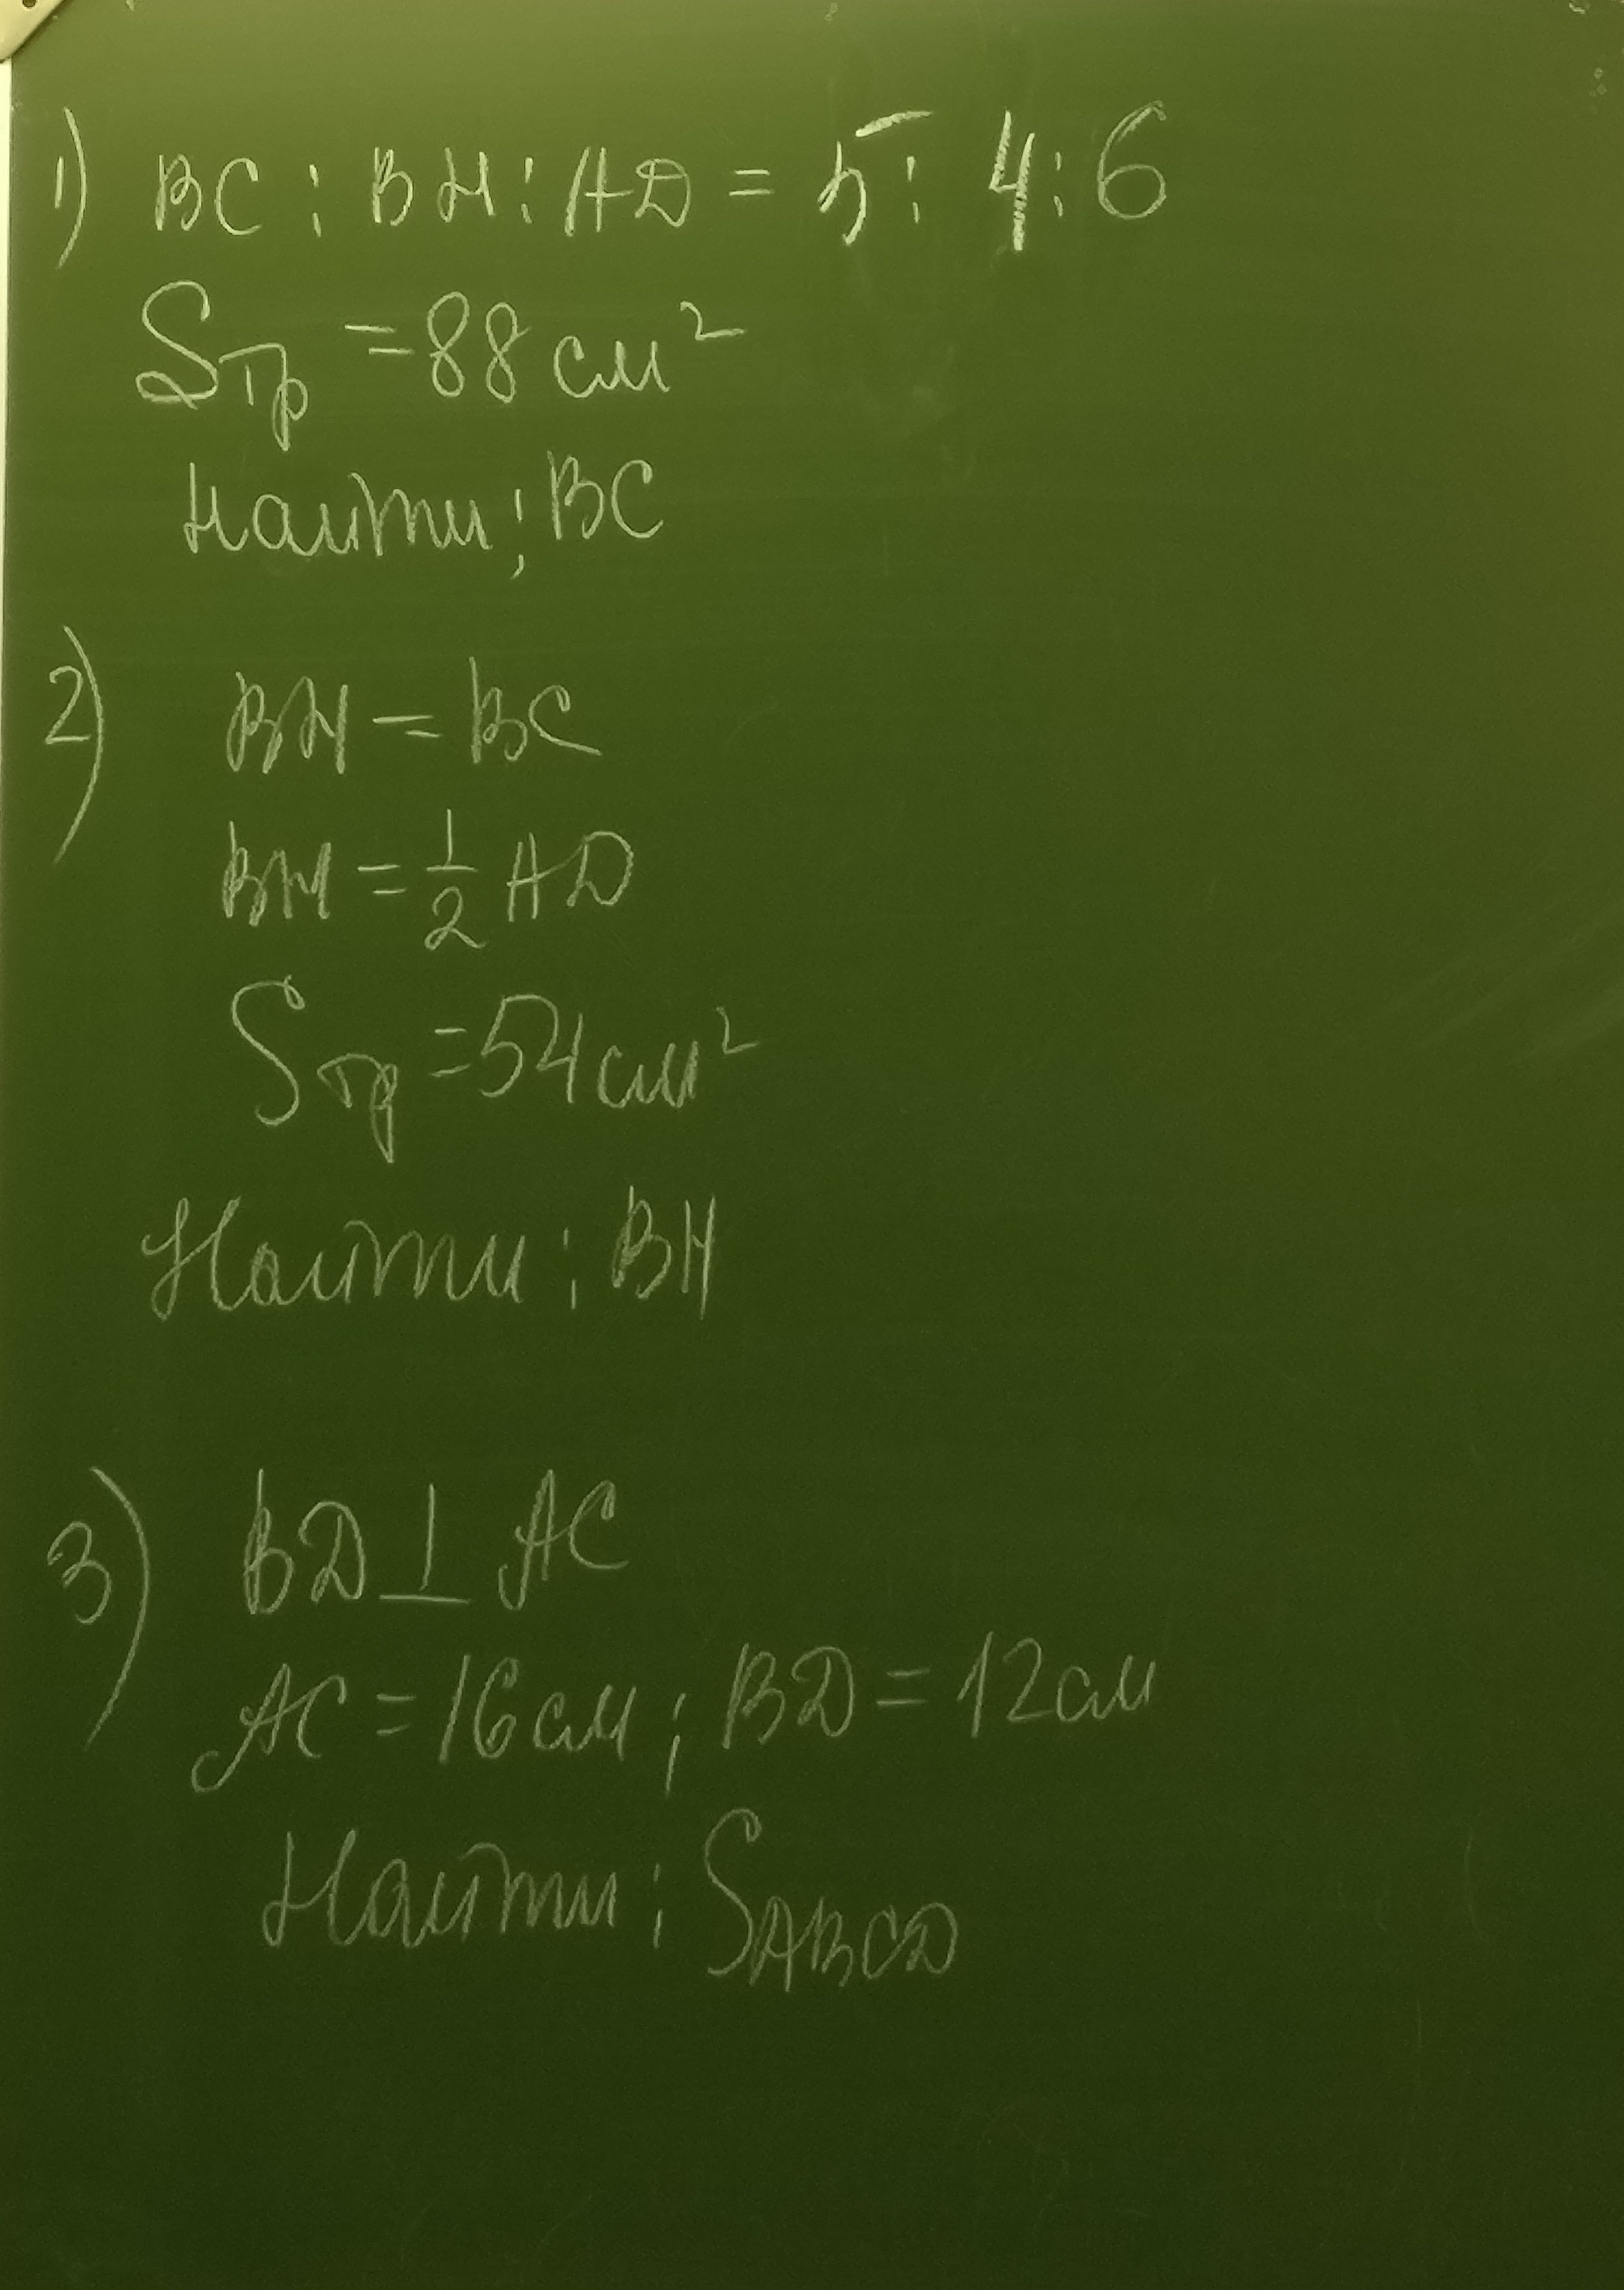 1) BC : BH : AD = 5 : 4 : 6
Sтр = 88 см²
Найти: BC
2) BH = BC
BH = 1/2 AD
Sтр = 54 см²
Найти: BH
3) BD ⊥ AC
AC = 16 см; BD = 12 см
Найти: SABCD